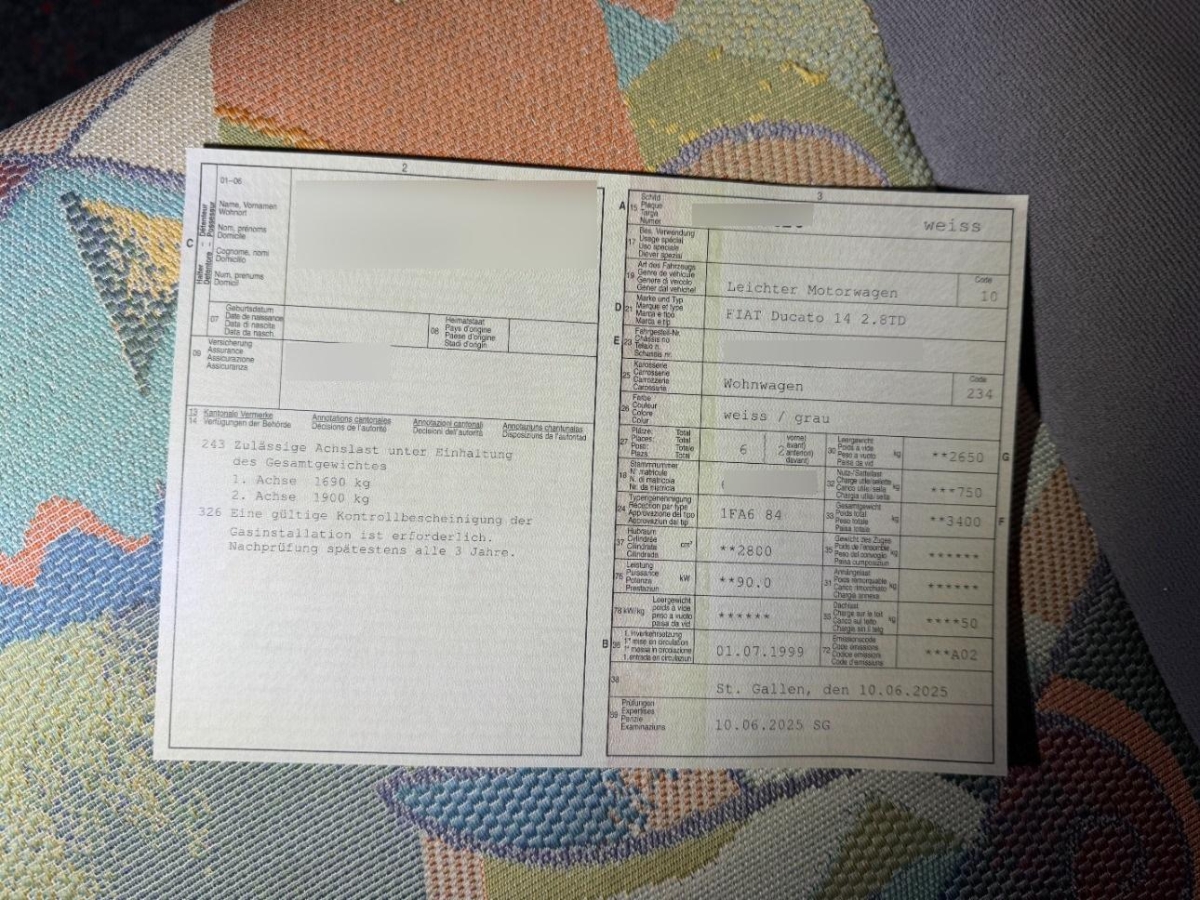 2
01-06
C
Halter
Détenteur
Detentore
Possessur
Name, Vornamen
Wohnort
Nom, prénoms
Domicile
Cognome, nomi
Domicilio
Num, prenums
Domicil
07
Geburtsdatum
Date de naissance
Data di nascita
Data da nasch.
08
Heimatstaat
Pays d'origine
Paese d'origine
Stadi d'origin
09
Versicherung
Assurance
Assicurazione
Assicuranza
13
14
Kantonale Vermerke
Verfügungen der Behörde
Annotations cantonales
Décisions de l'autorité
Annotazioni cantonali
Decisioni dell'autorità
Annotaziuns chantunalas
Disposiziuns da l'autoritad
243 Zulässige Achslast unter Einhaltung
des Gesamtgewichtes
1. Achse 1690 kg
2. Achse 1900 kg
326 Eine gültige Kontrollbescheinigung der
Gasinstallation ist erforderlich.
Nachprüfung spätestens alle 3 Jahre.
3
A
15
Schild
Plaque
Targa
Numer
weiss
17
Bes. Verwendung
Usage spécial
Uso speciale
Diever spezial
19
Art des Fahrzeugs
Genre de véhicule
Genere di veicolo
Gener dal vehichel
Leichter Motorwagen
Code
10
D
21
Marke und Typ
Marque et type
Marca e tipo
Marca e tip
FIAT Ducato 14 2.8TD
E
23
Fahrgestell-Nr.
Châssis no
Telaio n.
Schassis nr.
25
Karosserie
Carrosserie
Carrozzeria
Carossaria
Wohnwagen
Code
234
26
Farbe
Couleur
Colore
Colur
weiss / grau
27
Plätze: Total
Places: Total
Posti: Totale
Plazs: Total
6
vorne
avant
anteriori
davant
2
30
Leergewicht
Poids à vide
Peso a vuoto
Paisa da vid
kg
**2650
G
18
Stammnummer
N. matricule
N. di matricola
Nr. da matricla
32
Nutz-/Sattellast
Charge utile/sellette
Carico utile/sella
Chargia utila/sella
kg
***750
24
Typengenehmigung
Réception par type
Approvazione del tipo
Approvaziun dal tip
1FA6 84
33
Gesamtgewicht
Poids total
Peso totale
Paisa totala
kg
**3400
F
37
Hubraum
Cylindrée
Cilindrata
Cilindrada
cm³
**2800
35
Gewicht des Zuges
Poids de l'ensemble
Peso del convoglio
Paisa cumposiziun
kg
******
76
Leistung
Puissance
Potenza
Prestaziun
kW
**90.0
31
Anhängelast
Poids remorquable
Carico rimorchiato
Chargia annexa
kg
******
78
kW/kg
Leergewicht
poids à vide
peso a vuoto
paisa da vid
******
55
Dachlast
Charge sur le toit
Carico sul tetto
Chargia sin il tetg
kg
****50
B
36
1. Inverkehrsetzung
1re mise en circulation
1a messa in circolazione
1. entrada en circulaziun
01.07.1999
72
Emissionscode
Code émissions
Codice emissioni
Code d'emissiuns
***A02
38
St. Gallen, den 10.06.2025
39
Prüfungen
Expertises
Perizie
Examinaziuns
10.06.2025 SG